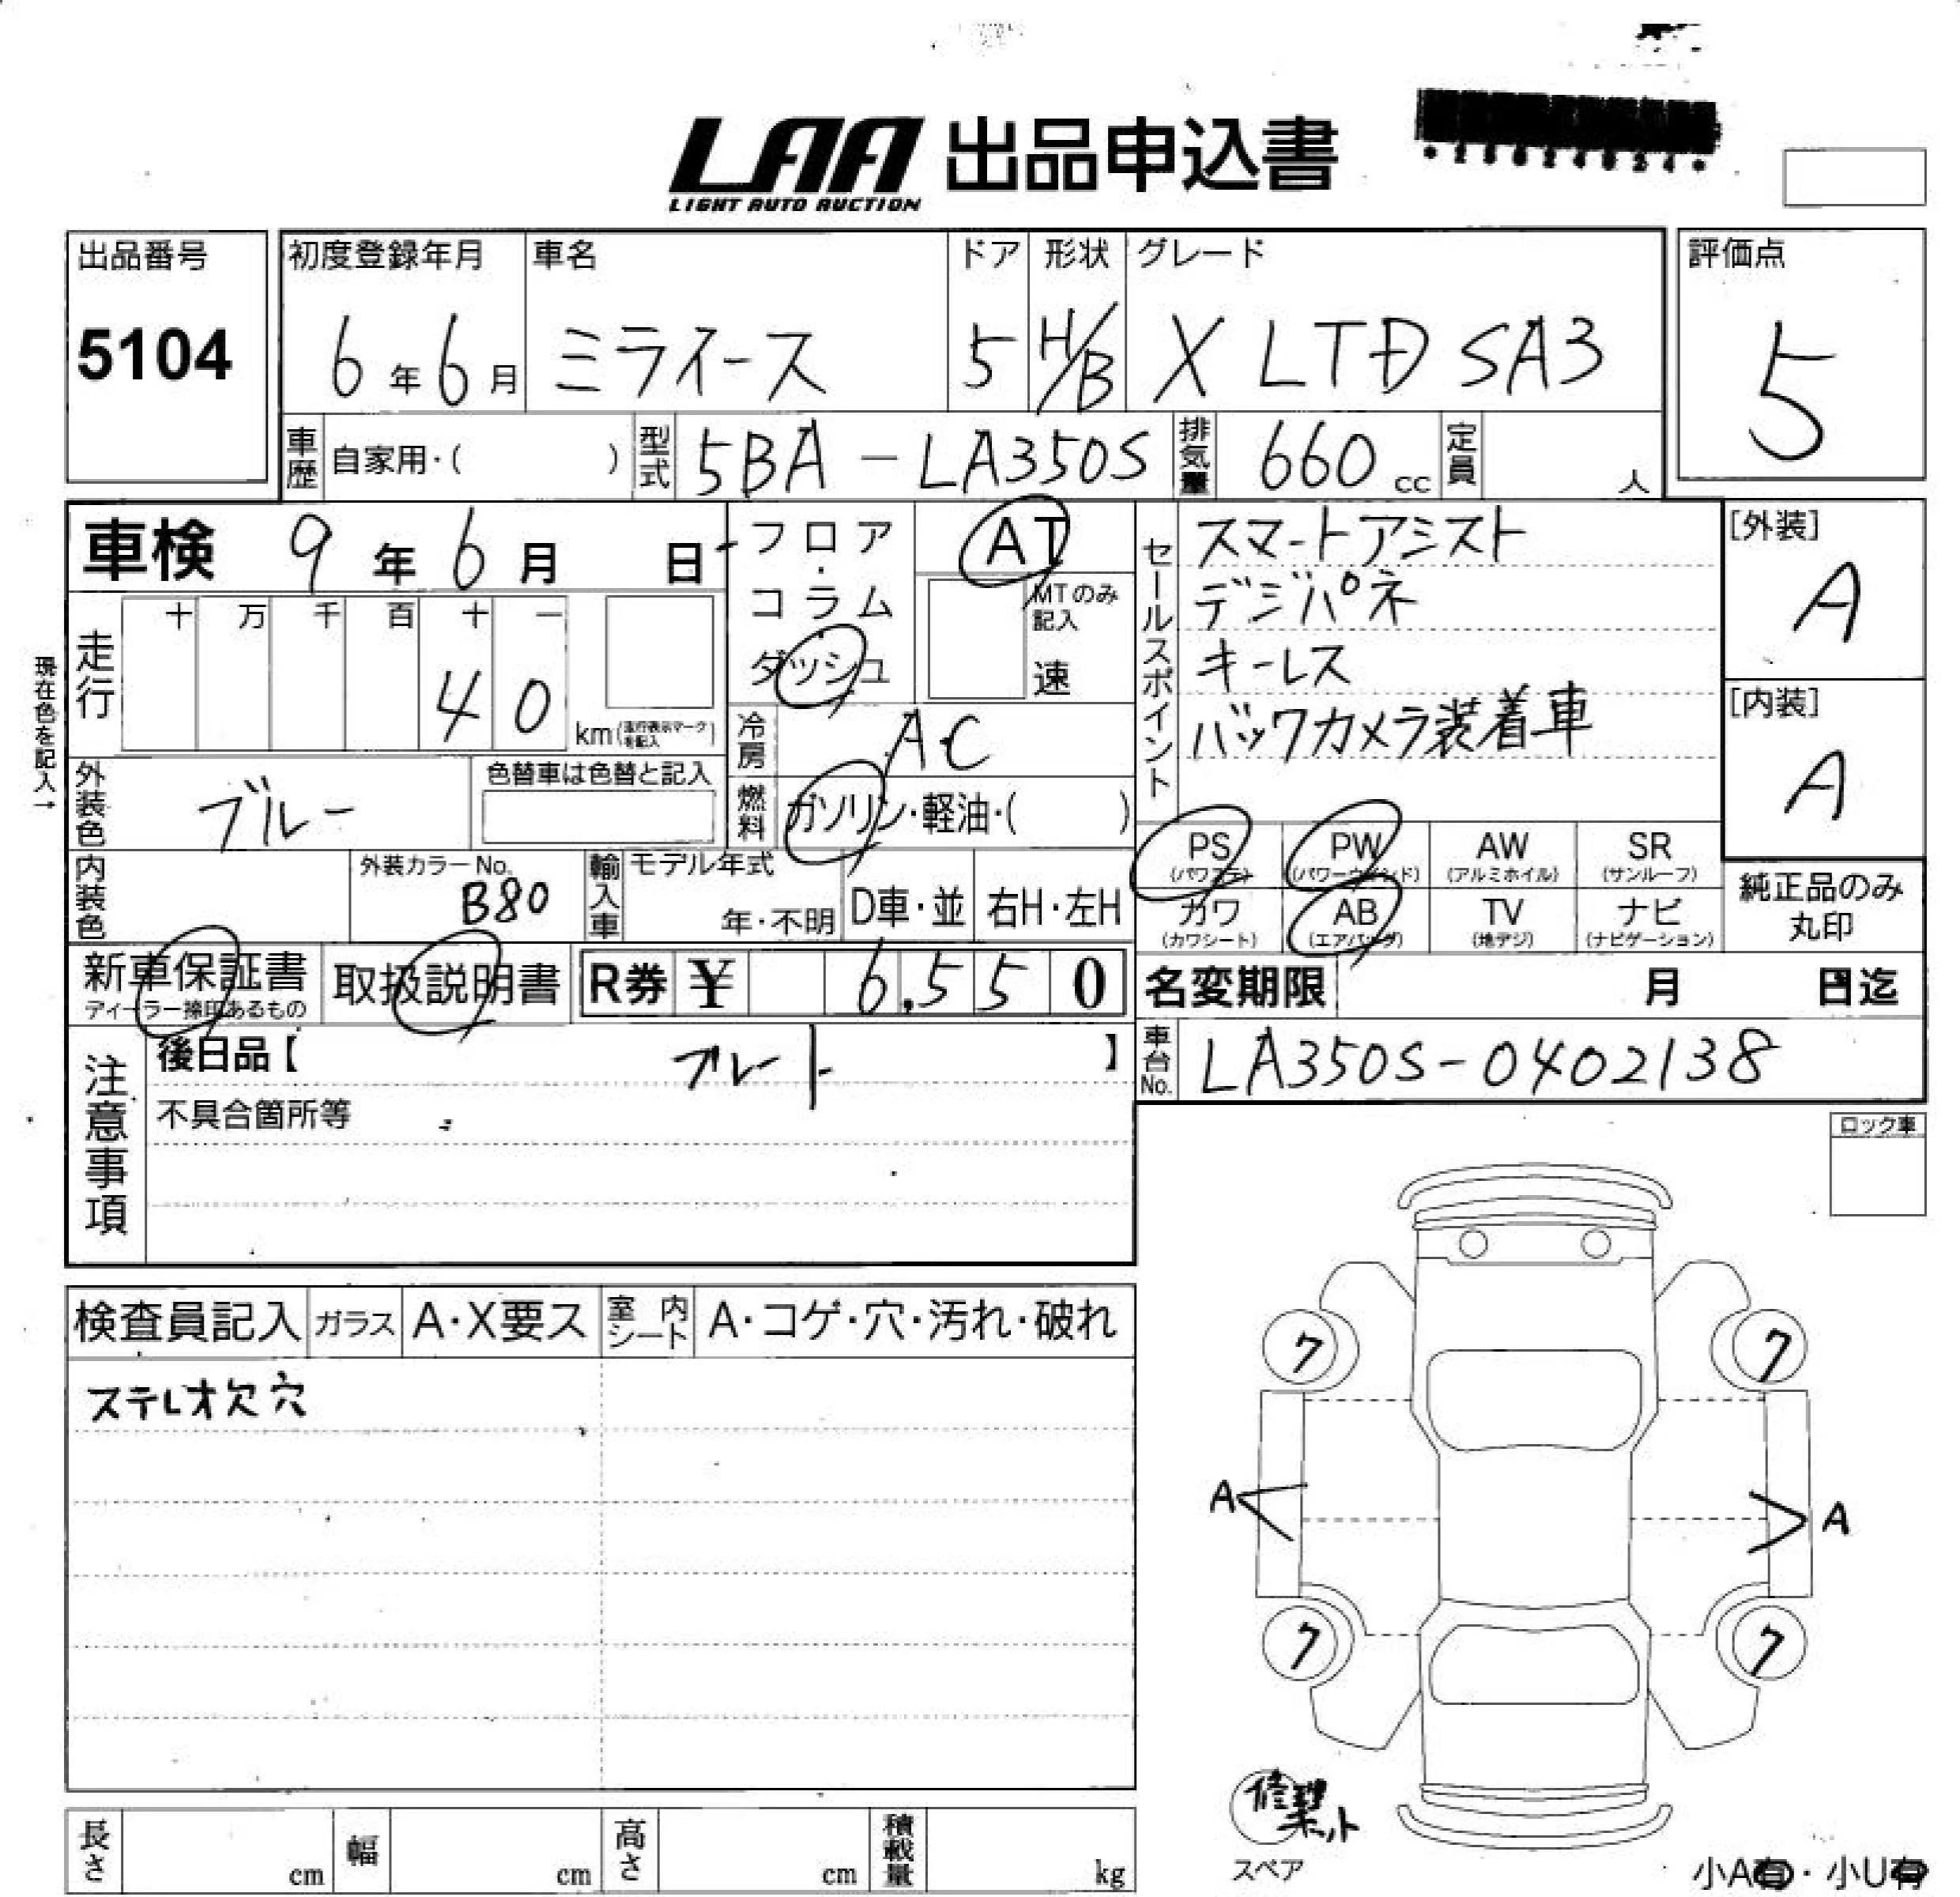 LAA 出品申込書
LIGHT AUTO AUCTION
出品番号 初度登録年月 車名 ドア 形状 グレード 評価点
5104 6年6月 ミライース 5 H/B X LTD SA3 5
車歴 自家用・( ) 型式 5BA-LA350S 排気量 660cc 定員 人
車検 9年6月 日 フロア AT セールスポイント スマートアシスト [外装]
コラム MTのみ記入 デジパネ A
走行 十 万 千 百 十 一 ダッシュ 速 キーレス
現在色を記入→
40 km(走行表示マークを記入) 冷房 AC バックカメラ装着車 [内装]
外装色 ブルー 色替車は色替と記入 燃料 ガソリン・軽油・( ) A
PS (パワステ) PW (パワーウインド) AW (アルミホイル) SR (サンルーフ)
内装色 外装カラーNo. B80 輸入車 モデル年式 年・不明 D車・並 右H・左H
カワ (カワシート) AB (エアバッグ) TV (地デジ) ナビ (ナビゲーション) 純正品のみ丸印
新車保証書 取扱説明書 R券 ¥ 6,550 名変期限 月 日迄
ディーラー捺印あるもの
注意事項 後日品【 プレート 】 車台No. LA350S-0402138
不具合箇所等
ロック車
検査員記入 ガラス A・X要ス 室内シート A・コゲ・穴・汚れ・破れ
ステレオ欠穴
7 7
A A
7 7
修理キット
スペア
長さ cm 幅 cm 高さ cm 積載量 kg
小A有・小U有